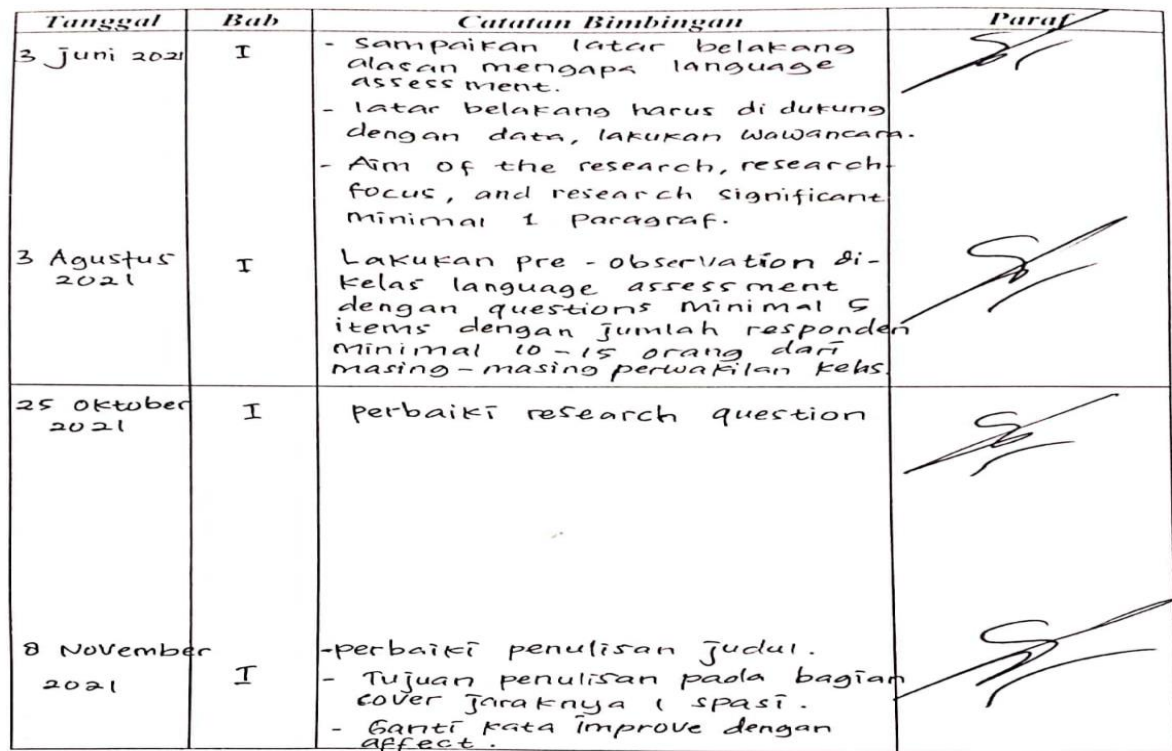 Tanggal Bab Catatan Bimbingan Paraf
3 Juni 2021 I - Sampaikan latar belakang
alasan mengapa language
assessment.
- latar belakang harus di dukung
dengan data, lakukan wawancara.
- Aim of the research, research
focus, and research significant
minimal 1 paragraf.
3 Agustus I Lakukan pre - observation di-
2021 kelas language assessment
dengan questions minimal 5
items dengan jumlah responden
minimal 10 - 15 orang dari
masing - masing perwakilan kelas.
25 Oktober I perbaiki research question
2021
8 November -perbaiki penulisan judul.
2021 I - Tujuan penulisan pada bagian
cover jaraknya 1 spasi.
- Ganti kata improve dengan
affect.